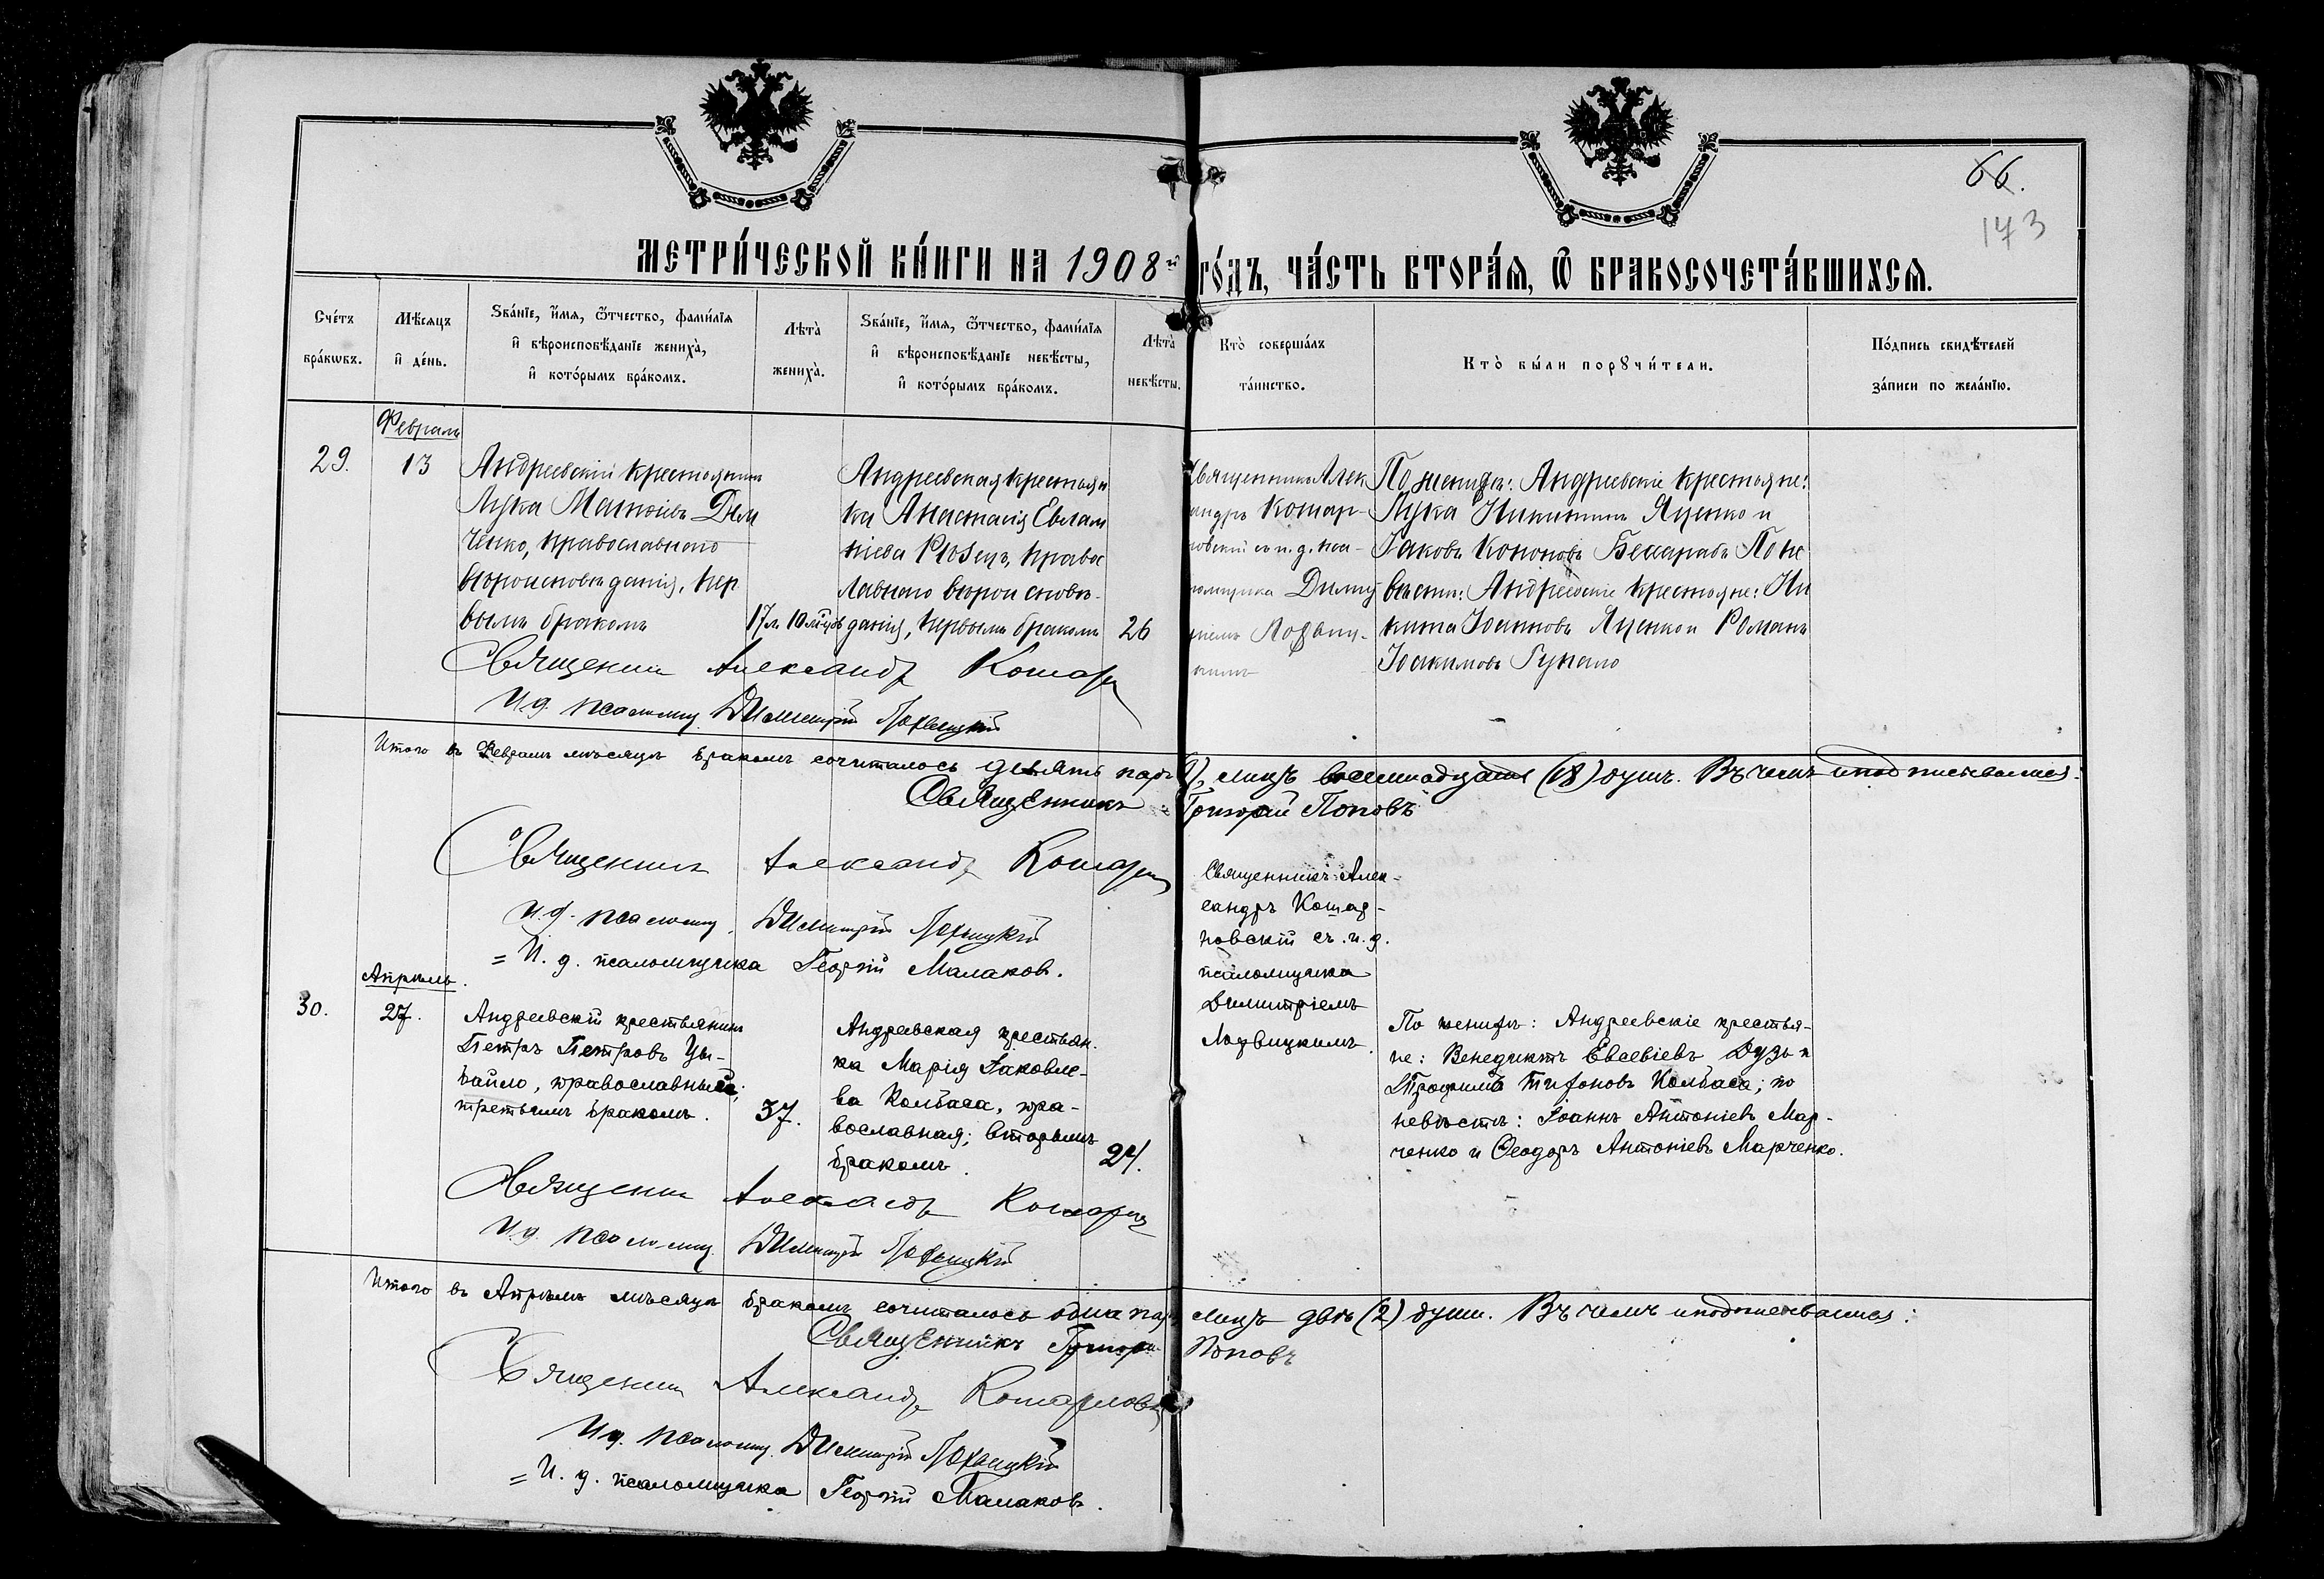 66.
173
МЕТРИ́ЧЕСКОЙ КНИ́ГИ НА 1908й ГО́ДЪ, ЧА́СТЬ ВТОРА́Ѧ, Ѿ БРАКОСОЧЕТА́ВШИХСѦ.
Сче́тъ бра́кѡвъ.
Мѣ́сѧцъ и҆ де́нь.
Ѕва́нїе, и҆́мѧ, ѻ҆́тчество, фами́лїѧ и҆ вѣроисповѣ́данїе жениха̀, и҆ кото́рымъ бра́комъ.
Лѣта̀ жениха̀.
Ѕва́нїе, и҆́мѧ, ѻ҆́тчество, фами́лїѧ и҆ вѣроисповѣ́данїе невѣ́сты, и҆ кото́рымъ бра́комъ.
Лѣта̀ невѣ́сты.
Кто̀ соверша́лъ та́инство.
Кто̀ бы́ли порꙋчи́тели.
По́дпись свидѣ́телей за́писи по жела́нїю.
Февраль
29.
13
Андреевскій крестьянинъ
Лука Матѳіевъ Дем
ченко, православнаго
вѣроисповѣданія, пер
вымъ бракомъ
17 л. 10 мѣсѣцовъ
Андреевская крестьян
ка Анастасія Евлам
піева Рюзецъ, правос
лавнаго вѣроисповѣ-
данія, первымъ бракомъ
26
Священникъ Алек
андръ Кошар-
новскій съ и. д. пса-
ломщика Дими
тріемъ Лозвиц-
кимъ
По женихѣ: Андреевскіе крестьяне:
Лука Никитинъ Яценко и
Іаковъ Кононовъ Бессарабъ По не
вѣстѣ: Андреевскіе крестьяне: Ни
кита Іоанновъ Яценко и Романъ
Іоакимовъ Гупало
Священникъ Александр Кошарн
И. д. псаломщ. Димитрій Лозвицкій
Итого въ Февралѣ мѣсяцѣ бракомъ сочиталось девять паръ (9), лицъ восемнадцать (18) душъ. Въ чемъ и подписываемся:
Священникъ Григорій Поповъ
Священникъ Александр Кошарн
И. д. псаломщ. Димитрій Лозвицкій
= И. д. псаломщика Георгій Малаковъ.
Апрѣль.
30.
27.
Андреевскій крестьянинъ
Петръ Петровъ Цы-
байло, православный;
третьимъ бракомъ.
37.
Андреевская крестьян-
ка Марія Іаковле-
ва Колбаса, пра-
вославная; вторымъ
бракомъ.
24.
Священникъ Алек-
сандръ Кошар-
новскій съ и. д.
псаломщика
Димитріемъ
Лозвицкимъ.
По женихѣ: Андреевскіе крестья-
не: Венедиктъ Евсевіевъ Дузь и
Трофимъ Тихоновъ Колбаса; по
невѣстѣ: Іоаннъ Антоніевъ Мар-
ченко и Ѳеодоръ Антоніевъ Марченко.
Священникъ Александр Кошарн
И. д. псаломщ. Димитрій Лозвицкій
Итого въ Апрѣлѣ мѣсяцѣ бракомъ сочиталось одна пара лицъ двѣ (2) души. Въ чемъ и подписываемся:
Священникъ Григорій Поповъ
Священникъ Александр Кошарновск
И. д. псаломщ. Димитрій Лозвицкій
= И. д. псаломщика Георгій Малаковъ.